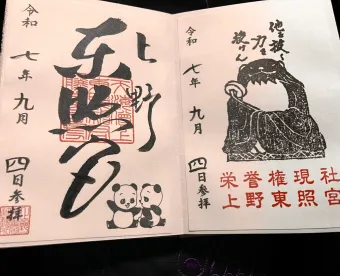 他を抜く
力を
授けん
令和
七年九月
四日参拝
栄誉権現社
上野東照宮
上野
東照宮
令和
七年九月
四日参拝